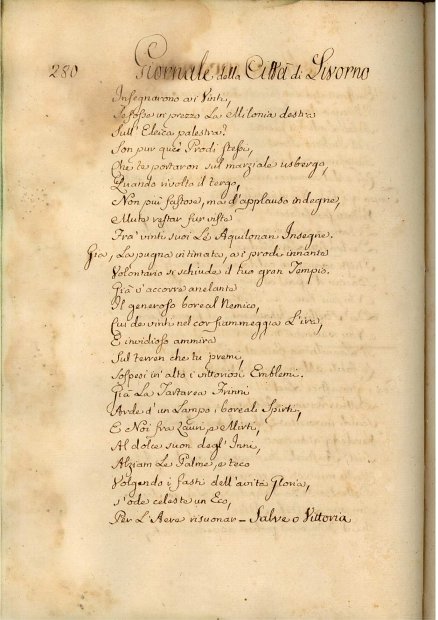 280 Giornale della Città di Livorno
Insegnarono a i Vinti,
Se fosse in prezzo La Milonia destra
Sull' Eleica palestra?
Son pur que' Prodi stessi,
Che te portaron sul marziale usbergo,
Quando rivolto il tergo,
Non più fastose, ma d'applauso indegne,
Mute restar fur viste
Fra' vinti suoi Le Aquilonari Insegne.
Già, La pugna intimata, a i prodi innante
Volontario si schiude il tuo gran Tempio.
Già v'accorre anelante
Il generoso boreal Nemico,
Cui de vinti nel cor fiammeggia L'ira,
E invidioso ammira
Sul terren che tu premi,
Sospesi in' alto i vittoriosi Emblemi.
Già La Tartarea Erinni
Arde d'un Lampo i boreali Spirti,
E Noi fra Lauri, e Mirti,
Al dolce suon degl' Inni,
Alziam Le Palme, e teco
Volgendo i fasti dell'avita Gloria,
s'ode celeste un Eco,
Per L'Aere risuonar – Salve o Vittoria